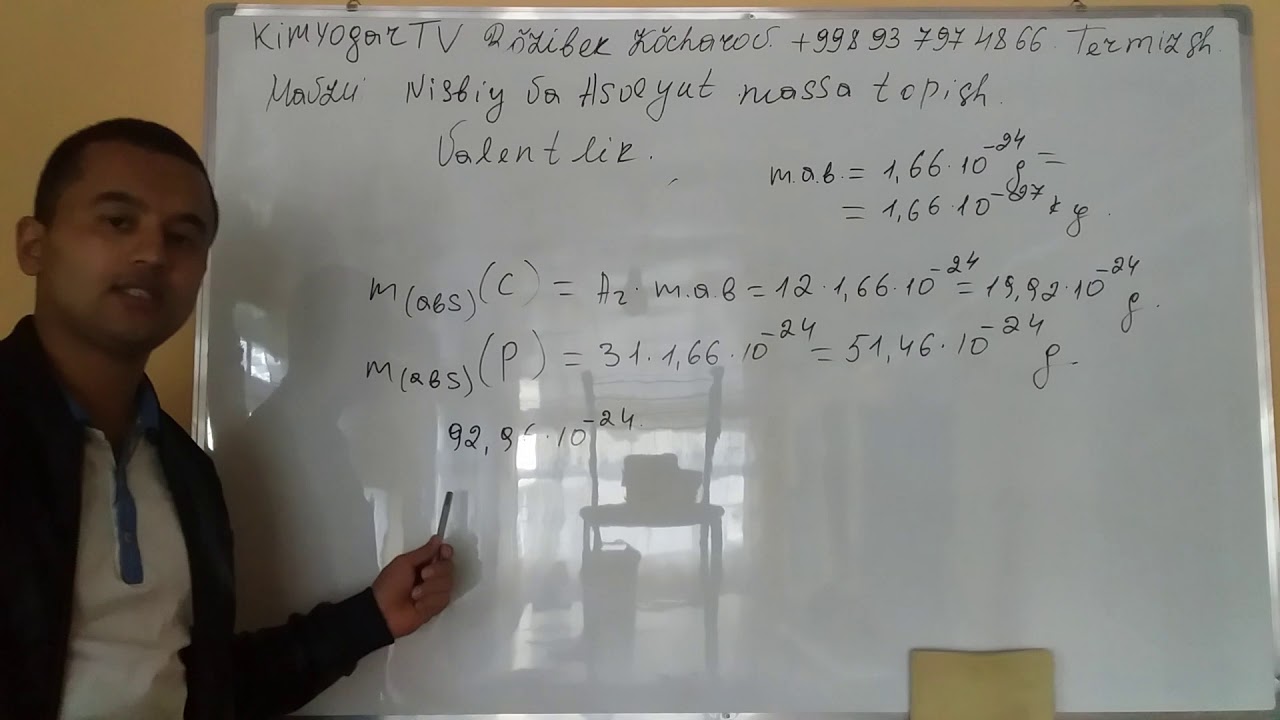 KimyogarTV Rŏzibek Kŏcharov. +998 93 797 48 66. Termizsh.
Mavzu Nisbiy va Absolyut massa topish.
Valentlik.
m.a.b. = 1,66·10⁻²⁴ g =
= 1,66·10⁻²⁷ kg.
m(abs)(C) = Ar· m.a.b = 12·1,66·10⁻²⁴ = 19,92·10⁻²⁴ g.
m(abs)(P) = 31·1,66·10⁻²⁴ = 51,46·10⁻²⁴ g.
92,96·10⁻²⁴.